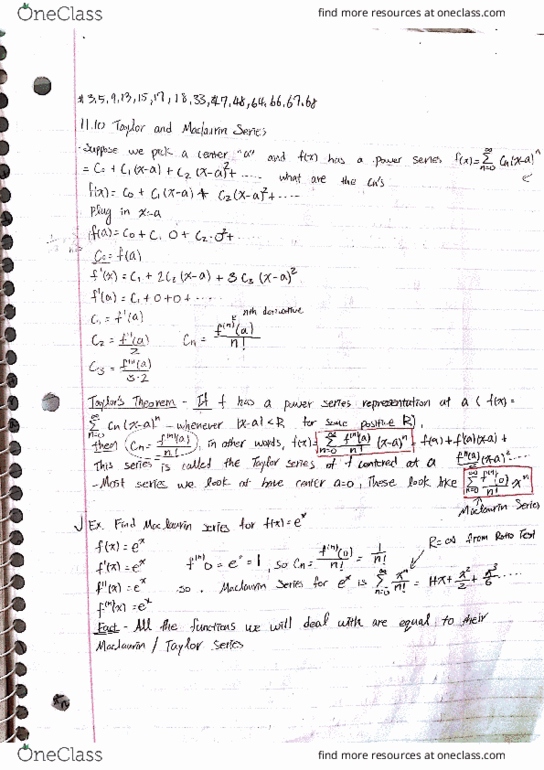 OneClass
find more resources at oneclass.com
# 3,5,9,13,15,17,18,33,47,48,64,66,67,68
11.10 Taylor and Maclaurin Series
-Suppose we pick a center "a" and f(x) has a power series f(x)=∑_{n=0}^{∞} Cn(x-a)^n
= C0 + C1(x-a) + C2(x-a)²+..... what are the Cn's
f(x)= C0 + C1(x-a) + C2(x-a)²+....
Plug in x=a
f(a)=C0+C1 0+C2·0²+
C0=f(a)
f'(x)=C1+2C2(x-a)+3C3(x-a)²
f'(a)=C1+0+0+....
nth derivative
C1=f'(a)
C2=f''(a)/2 Cn=f^(n)(a)/n!
C3=f'''(a)/3·2
Taylor's Theorem - If f has a power series representation at a (f(x)=
∑_{n=0}^{∞} Cn(x-a)^n - whenever |x-a|<R for some positive R),
then Cn=f^(n)(a)/n!, in other words, f(x)=∑_{n=0}^{∞} f^(n)(a)/n! (x-a)^n = f(a)+f'(a)(x-a)+
This series is called the Taylor series of f centered at a f''(a)/2 (x-a)²....
-Most series we look at have center a=0, These look like ∑_{n=0}^{∞} f^(n)(0)/n! x^n
Maclaurin Series
Ex. Find Maclaurin series for f(x)=e^x
R=∞ from Ratio Test
f(x)=e^x
f'(x)=e^x f^(n)0=e°=1, so Cn=f^(n)(0)/n!=1/n!
f''(x)=e^x so, Maclaurin Series for e^x is ∑_{n=0}^{∞} x^n/n! = 1+x+x²/2+x³/6.....
f^(n)(x)=e^x
Fact - All the functions we will deal with are equal to their
Maclaurin / Taylor Series
OneClass
find more resources at oneclass.com